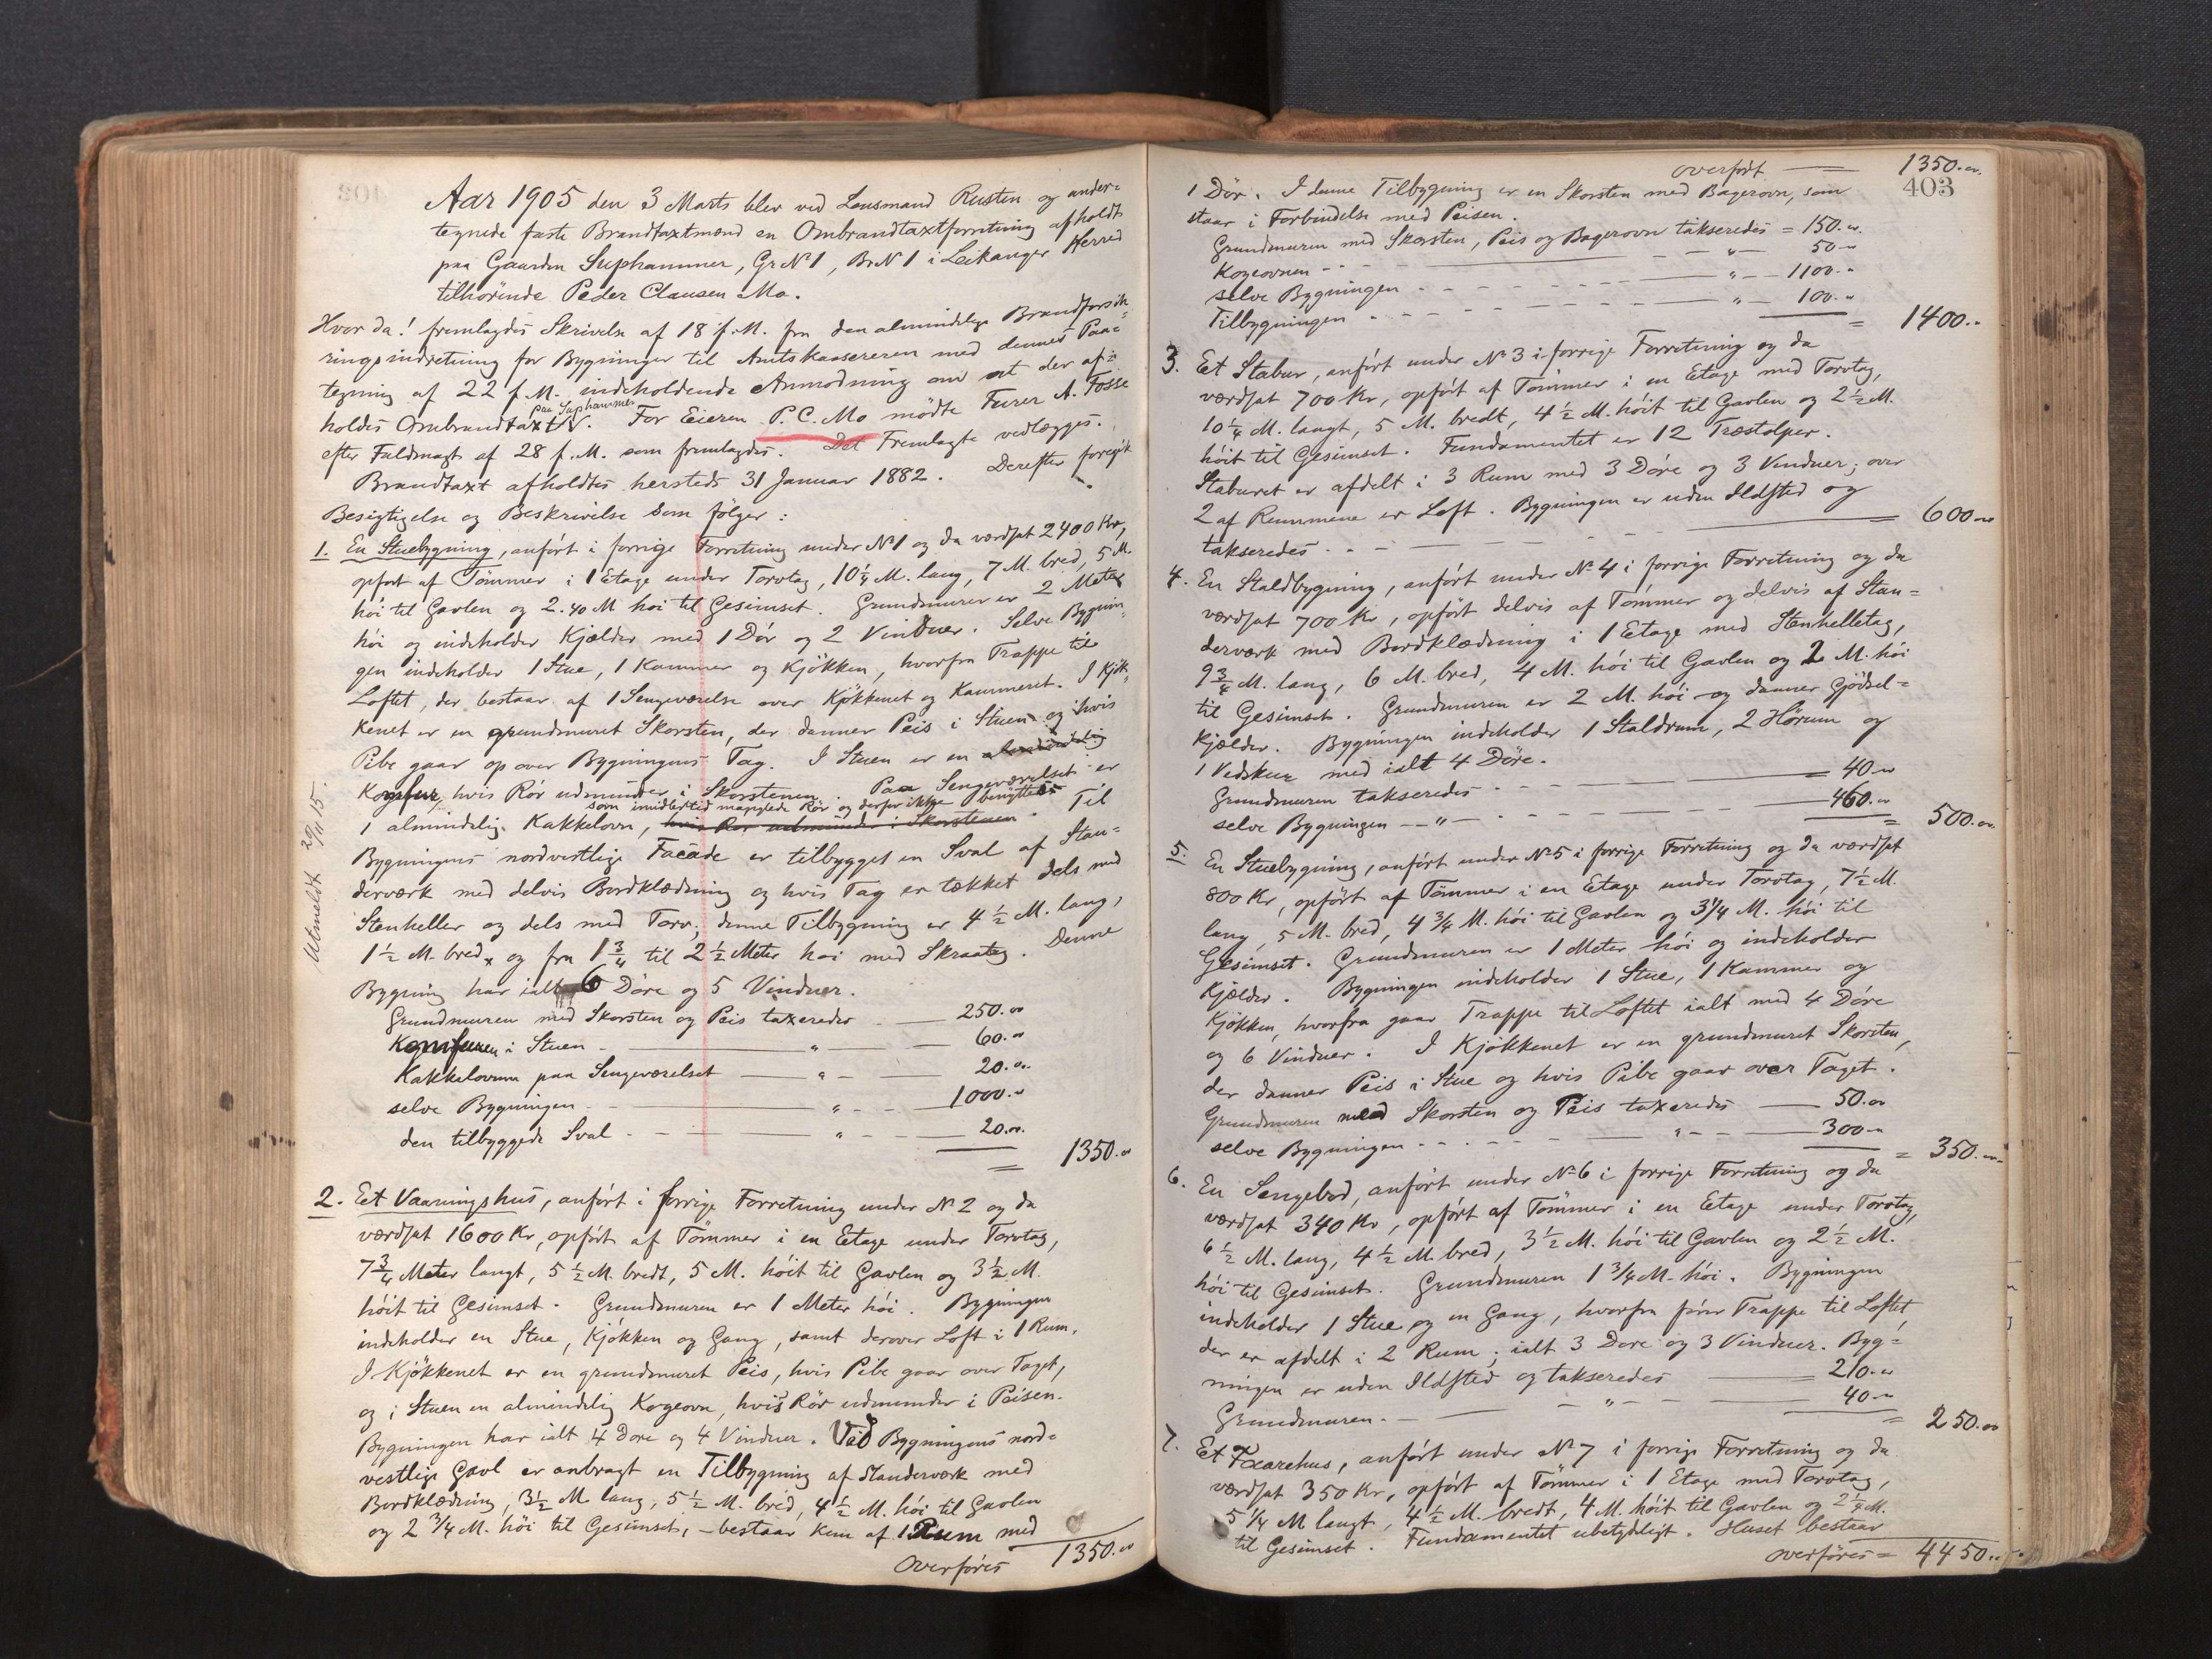 Aar 1905 den 3 Marts blev ved Lensmand Rusten og under=
tegnede faste Brandtaxtmænd en Ombrandtaxtforretning afholdt
paa Gaarden Suphammer, Gr N 1, Br N 1 i Leikanger Herred
tilhörende Peder Clausen Mo.
Hvor da! fremlagdes Skrivelse af 18 f. M. fra den almindelige Brandforsik=
ringsindretning for Bygninger til Amtskassereren med dennes Paa=
tegning af 22 f. M. indeholdende Anmodning om at der af=
holdes Ombrandtaxt paa Suphammer. For Eieren P. C. Mo mödte Furer A. Fosse
efter Fuldmagt af 28 f. M. som fremlagdes. Det Fremlagte vedlægges.
Brandtaxt afholdtes hersteds 31 Januar 1882. Derefter foregik
Besigtigelse og Beskrivelse som fölger:
1. En Stuebygning, anfört i forrige Forretning under N 1 og da værdsat 2400 Kr,
opfört af Tömmer i 1 Etage under Torvtag, 10 1/4 M. lang, 7 M. bred, 5 M.
höi til Gavlen og 2.40 M höi til Gesimset. Grundmuren er 2 Meter
höi og indeholder Kjælder med 1 Dör og 2 Vinduer. Selve Bygnin=
gen indeholder 1 Stue, 1 Kammer og Kjökken, hvorfra Trappe til
Loftet, der bestaar af 1 Sengeværelse over Kjökkenet og Kammeret. I Kjök=
kenet er en grundmuret Skorsten, der danner Peis i Stuen og hvis
Pibe gaar op over Bygningens Tag. I Stuen er en almindelig
Komfur, hvis Rör udmunder i Skorstenen. Paa Sengeværelset er
som imidlertid manglede Rör og derfor ikke benyttes
1 almindelig Kakkelovn, hvis Rör udmunder i Skorstenen. Til
Bygningens nordvestlige Facade er tilbygget en Sval af Stan=
derværk med delvis Bordklædning og hvis Tag er tækket dels med
Stenheller og dels med Torv; denne Tilbygning er 4 1/2 M. lang,
1 1/2 M. bred og fra 1 3/4 til 2 1/2 Meter höi med Skraatag. Denne
Bygning har ialt 6 Döre og 5 Vinduer.
Grundmuren med Skorsten og Peis taxeredes — 250.00
Komfuren i Stuen — " — 60.00
Kakkelovnen paa Sengeværelset — " — 20.00
selve Bygningen — " — 1000.00
den tilbyggede Sval — " — 20.00
= 1350.00
Utmeldt 29/11 15.
2. Et Vaaningshus, anfört i forrige Forretning under N 2 og da
værdsat 1600 Kr, opfört af Tömmer i en Etage under Torvtag,
7 3/4 Meter langt, 5 1/2 M. bredt, 5 M. höit til Gavlen og 3 1/2 M.
höit til Gesimset. Grundmuren er 1 Meter höi. Bygningen
indeholder en Stue, Kjökken og Gang, samt derover Loft i 1 Rum.
I Kjökkenet er en grundmuret Peis, hvis Pibe gaar over Taget,
og i Stuen en almindelig Kogeovn, hvis Rör udmunder i Peisen.
Bygningen har ialt 4 Döre og 4 Vinduer. Ved Bygningens nord=
vestlige Gavl er anbragt en Tilbygning af Standerværk med
Bordklædning, 3 1/2 M lang, 5 1/2 M. bred, 4 1/2 M. höi til Gavlen
og 2 3/4 M. höi til Gesimset, – bestaar kun af 1 Rum med
Overföres 1350.00
overfört — 1350.00
403
1 Dör. I denne Tilbygning er en Skorsten med Bagerovn, som
staar i Forbindelse med Peisen.
Grundmuren med Skorsten, Peis og Bagerovn takseredes = 150.00
Kogeovnen — " — 50.00
selve Bygningen — " — 1100.00
Tilbygningen — " — 100.00
= 1400.00
3. Et Stabur, anfört under N 3 i forrige Forretning og da
værdsat 700 Kr, opfört af Tömmer i en Etage med Torvtag,
10 1/4 M. langt, 5 M. bredt, 4 1/2 M. höit til Gavlen og 2 1/2 M.
höit til Gesimset. Fundamentet er 12 Træstolper.
Staburet er afdelt i 3 Rum med 3 Döre og 3 Vinduer; over
2 af Rummene er Loft. Bygningen er uden Ildsted og
takseredes — = 600.00
4. En Staldbygning, anfört under N 4 i forrige Forretning og da
værdsat 700 Kr, opfört delvis af Tömmer og delvis af Stan=
derværk med Bordklædning i 1 Etage med Stenhelletag,
9 3/4 M. lang, 6 M. bred, 4 M. höi til Gavlen og 2 M. höi
til Gesimset. Grundmuren er 2 M. höi og danner Gjödsel=
kjælder. Bygningen indeholder 1 Staldrum, 2 Hörum og
1 Vedskur med ialt 4 Döre.
Grundmuren takseredes — = 40.00
selve Bygningen — " — 460.00
= 500.00
5. En Stuebygning, anfört under N 5 i forrige Forretning og da værdsat
800 Kr, opfört af Tömmer i en Etage under Torvtag, 7 1/2 M.
lang, 5 M. bred, 4 3/4 M. höi til Gavlen og 3 1/4 M. höi til
Gesimset. Grundmuren er 1 Meter höi og indeholder
Kjælder. Bygningen indeholder 1 Stue, 1 Kammer og
Kjökken, hvorfra gaar Trappe til Loftet ialt med 4 Döre
og 6 Vinduer. I Kjökkenet er en grundmuret Skorsten,
der danner Peis i Stue og hvis Pibe gaar over Taget.
Grundmuren med Skorsten og Peis taxeredes — 50.00
selve Bygningen — " — 300.00
= 350.00
6. En Sengebod, anfört under N 6 i forrige Forretning og da
værdsat 340 Kr, opfört af Tömmer i en Etage under Torvtag,
6 1/2 M. lang, 4 1/2 M. bred, 3 1/2 M. höi til Gavlen og 2 1/2 M.
höi til Gesimset. Grundmuren 1 3/4 M. höi. Bygningen
indeholder 1 Stue og en Gang, hvorfra förer Trappe til Loftet,
der er afdelt i 2 Rum; ialt 3 Döre og 3 Vinduer. Byg=
ningen er uden Ildsted og takseredes — 210.00
Grundmuren — " — 40.00
= 250.00
7. Et Faarehus, anfört under N 7 i forrige Forretning og da
værdsat 350 Kr, opfört af Tömmer i 1 Etage med Torvtag,
5 1/4 M langt, 4 1/2 M. bredt, 4 M. höit til Gavlen og 2 1/4 M.
til Gesimset. Fundamentet ubetydeligt. Huset bestaar
overföres = 4450.00